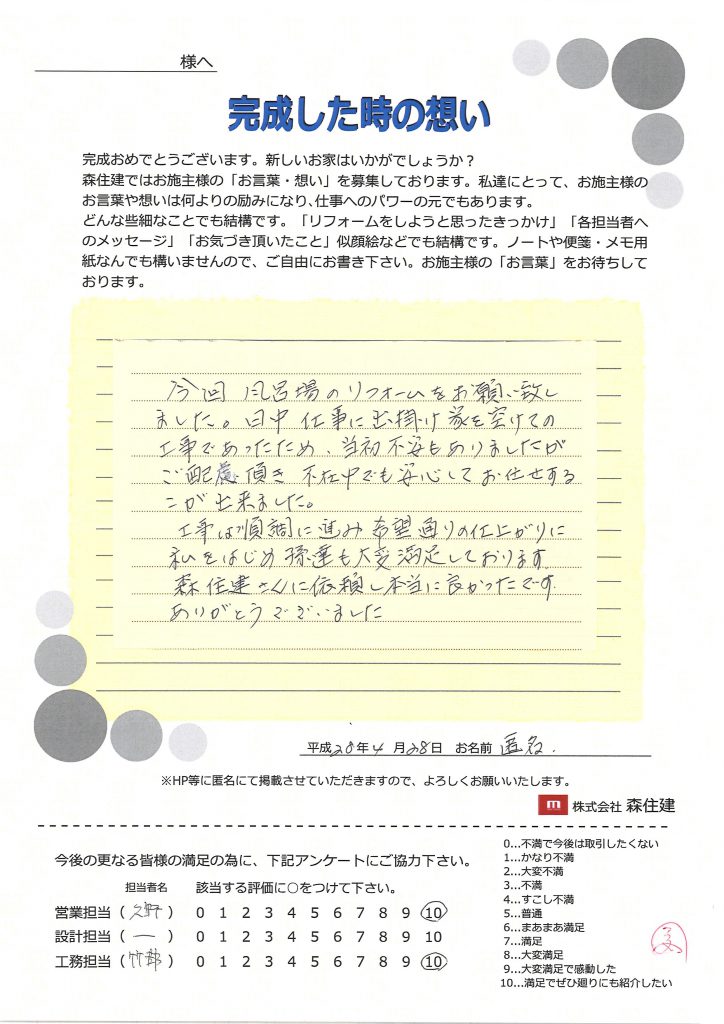 様へ
完成した時の想い
完成おめでとうございます。新しいお家はいかがでしょうか？
森住建ではお施主様の「お言葉・想い」を募集しております。私達にとって、お施主様の
お言葉や想いは何よりの励みになり、仕事へのパワーの元でもあります。
どんな些細なことでも結構です。「リフォームをしようと思ったきっかけ」「各担当者へ
のメッセージ」「お気づき頂いたこと」似顔絵などでも結構です。ノートや便箋・メモ用
紙なんでも構いませんので、ご自由にお書き下さい。お施主様の「お言葉」をお待ちして
おります。
今回 風呂場のリフォームをお願い致し
ました。日中 仕事に出掛け 家を空けての
工事であったため、当初不安もありましたが
ご配慮頂き 不在中でも安心してお任せする
こが出来ました。
工事は順調に進み 希望通りの仕上がりに
私をはじめ 孫達も大変満足しております
森住建さんに依頼し本当に良かったです
ありがとうございました
平成28年4月28日 お名前 匿名.
※HP等に匿名にて掲載させていただきますので、よろしくお願いいたします。
m 株式会社 森住建
今後の更なる皆様の満足の為に、下記アンケートにご協力下さい。
担当者名 該当する評価に○をつけて下さい。
営業担当（久野）0 1 2 3 4 5 6 7 8 9 10
設計担当（ー）0 1 2 3 4 5 6 7 8 9 10
工務担当（ ）0 1 2 3 4 5 6 7 8 9 10
0…不満で今後は取引したくない
1…かなり不満
2…大変不満
3…不満
4…すこし不満
5…普通
6…まあまあ満足
7…満足
8…大変満足
9…大変満足で感動した
10…満足でぜひ廻りにも紹介したい